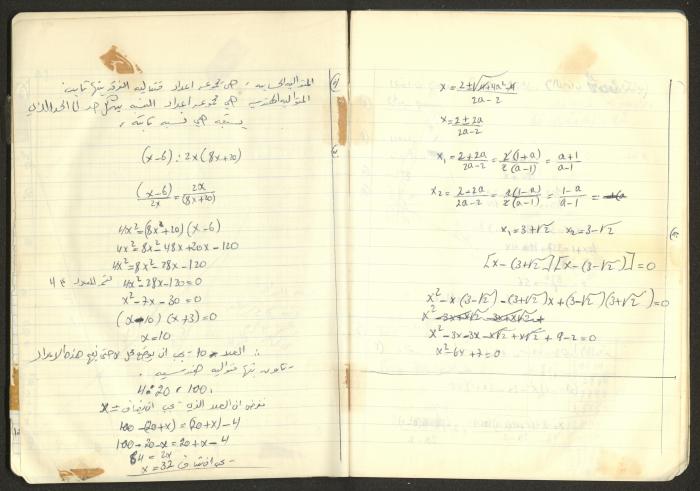 المتوالية الحسابية هي مجموعة اعداد متتالية الفرق بينها ثابت
المتوالية الهندسية هي مجموعة اعداد النسبة بين كل حد الى الحد الذي
يسبقه هي نسبة ثابتة .
(x-6) : 2x (8x+20)
(x-6)/2x = 2x/(8x+20)
4x²=(8x+20)(x-6)
4x²=8x²-48x+20x-120
4x²=8x²-28x-120
4x²-28x-120=0
x²-7x-30=0
(x-10)(x+3)=0
x=10
∴ العدد 10 يجب ان
متوالية هندسية .
4 : 20 : 100 .
نفرض ان العدد الذي يجب اضافته = x
100-(20+x)=(20+x)-4
100-20-x=20+x-4
64=2x
x=32 يجب اضافة
x=2±√4+4a²-4
2a-2
x=2±2a
2a-2
x₁=2+2a/2a-2=2(1+a)/2(a-1)=a+1/a-1
x₂=2-2a/2a-2=2(1-a)/2(a-1)=1-a/a-1=
x₁=3+√2 x₂=3-√2
[x-(3+√2)][x-(3-√2)]=0
x²-x(3-√2)-(3+√2)x+(3-√2)(3+√2)=0
x²-3x+x√2-3x+x√2+
x²-3x-3x-x√2+x√2+9-2=0
x²-6x+7=0